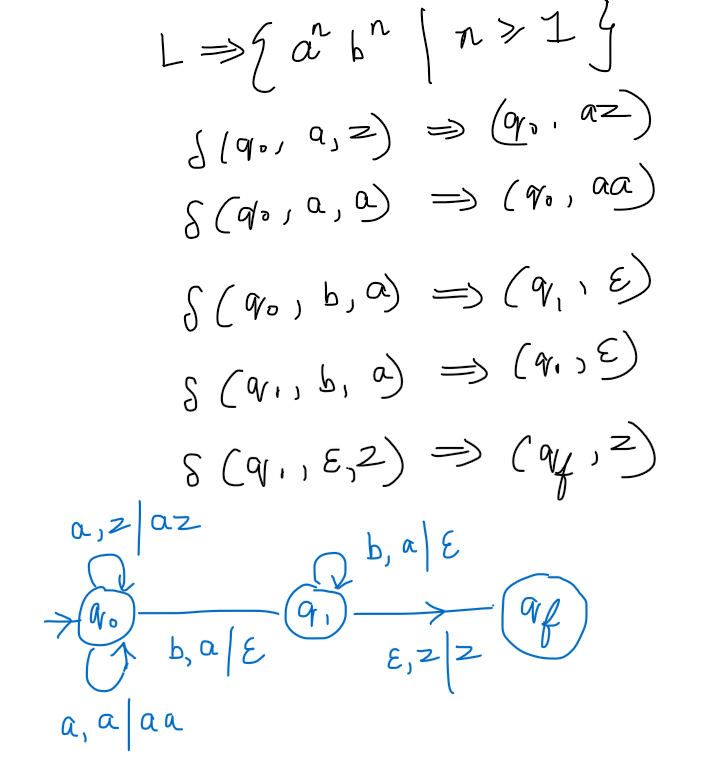 L ⇒ { aⁿ bⁿ | n ≥ 1 }
δ(q₀, a, z) ⇒ (q₀, az)
δ(q₀, a, a) ⇒ (q₀, aa)
δ(q₀, b, a) ⇒ (q₁, ε)
δ(q₁, b, a) ⇒ (q₁, ε)
δ(q₁, ε, z) ⇒ (q_f, z)
a, z | az
b, a | ε
q₀ q₁ q_f
b, a | ε
ε, z | z
a, a | aa